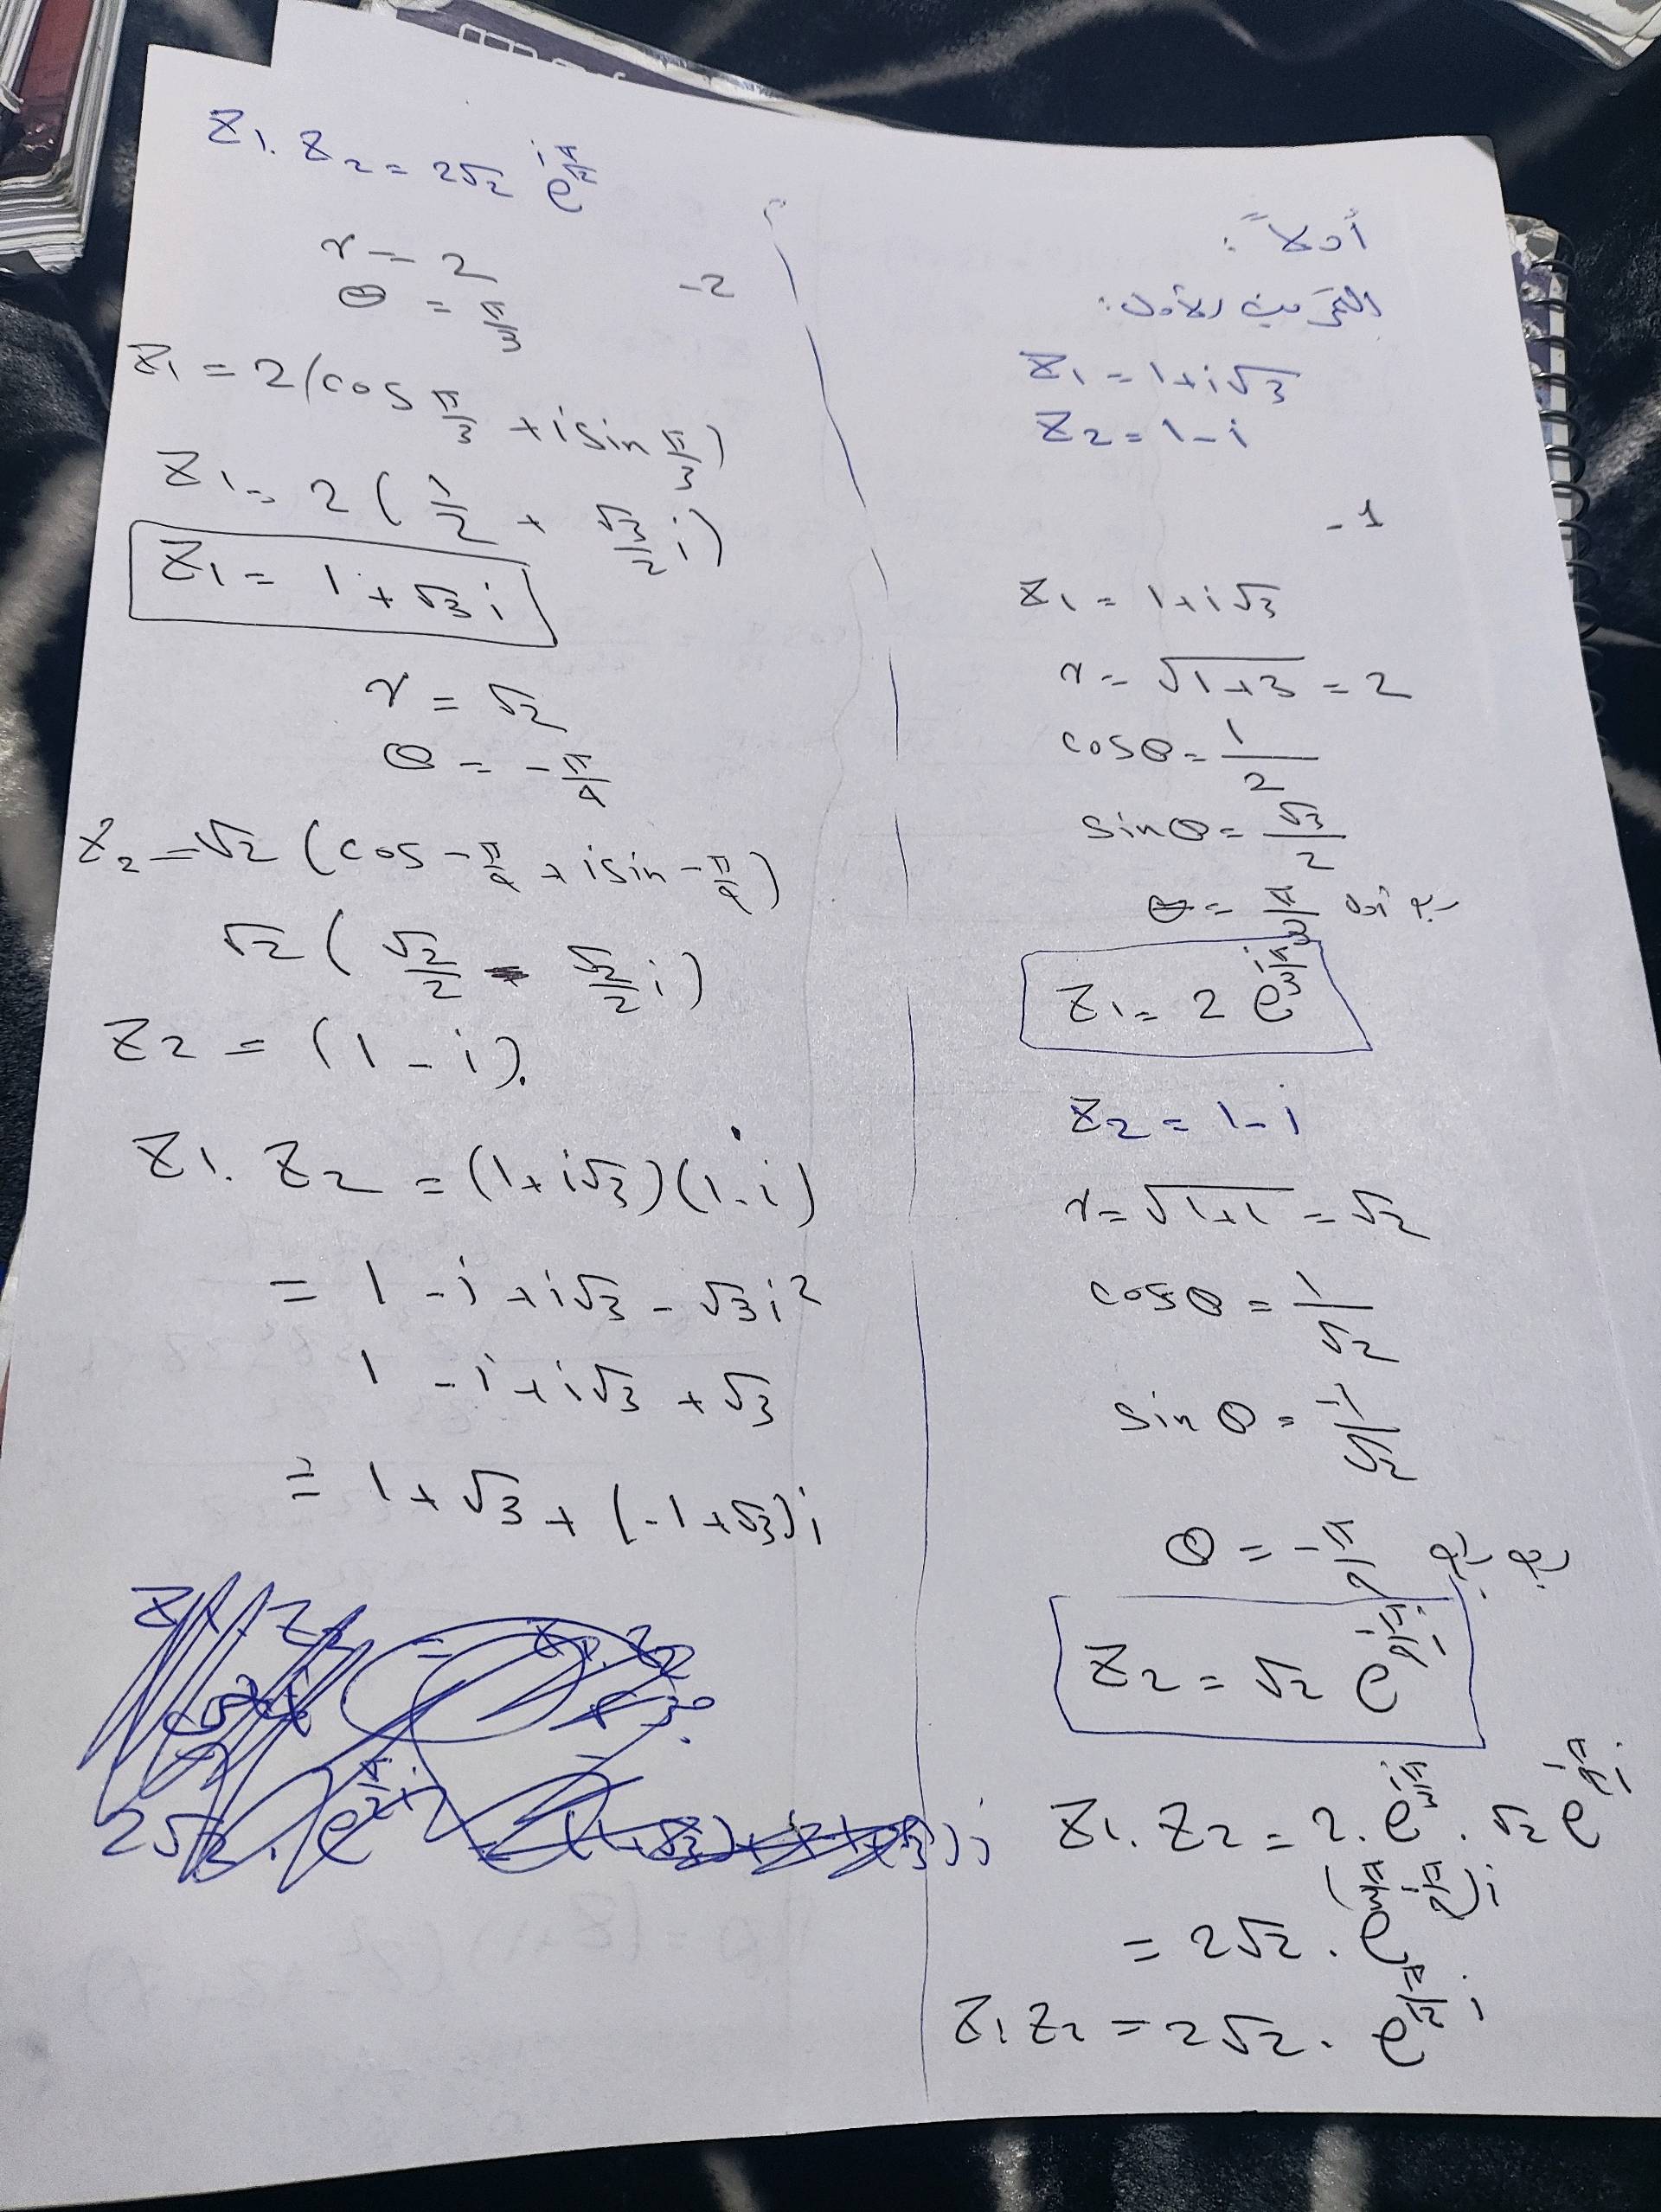 أولاً:
التمرين الأول:
Z₁ = 1+i√3
Z₂ = 1-i
-1
Z₁ = 1+i√3
r = √(1+3) = 2
cosθ = 1/2
sinθ = √3/2
θ = π/3 ربع أول
Z₁ = 2 e^(iπ/3)
Z₂ = 1-i
r = √(1+1) = √2
cosθ = 1/√2
sinθ = -1/√2
θ = -π/4 ربع رابع
Z₂ = √2 e^(-π/4 i)
Z₁.Z₂ = 2.e^(iπ/3) . √2 e^(-π/4 i)
= 2√2 . e^((π/3 - π/4)i)
Z₁Z₂ = 2√2 . e^(π/12 i)
Z₁.Z₂ = 2√2 e^(iπ/12)
-2
r = 2
θ = π/3
Z₁ = 2(cos π/3 + isin π/3)
Z₁ = 2(1/2 + √3/2 i)
Z₁ = 1+√3 i
r = √2
θ = -π/4
Z₂ = √2 (cos -π/4 + isin -π/4)
√2 (√2/2 - √2/2 i)
Z₂ = (1-i).
Z₁.Z₂ = (1+i√3)(1-i)
= 1-i+i√3-√3i²
1-i+i√3+√3
= 1+√3+(-1+√3)i